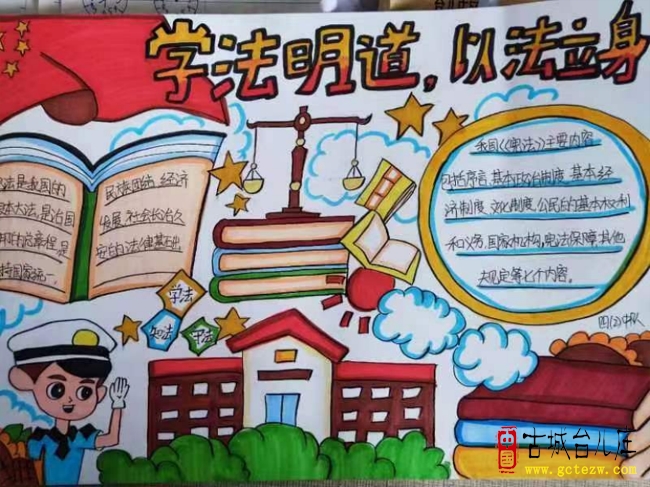 学法明道，以法立身
民族团结、经济
发展、社会长治久
安的法律基石出
我国《宪法》主要内容
包括序言、基本政治制度、基本经
济制度、文化制度、公民的基本权利
和义务、国家机构、宪法保障、其他
大规定等七个内容。
学法
知法
守法
四(2)中队
中国
古城台儿庄
www.gctezw.com